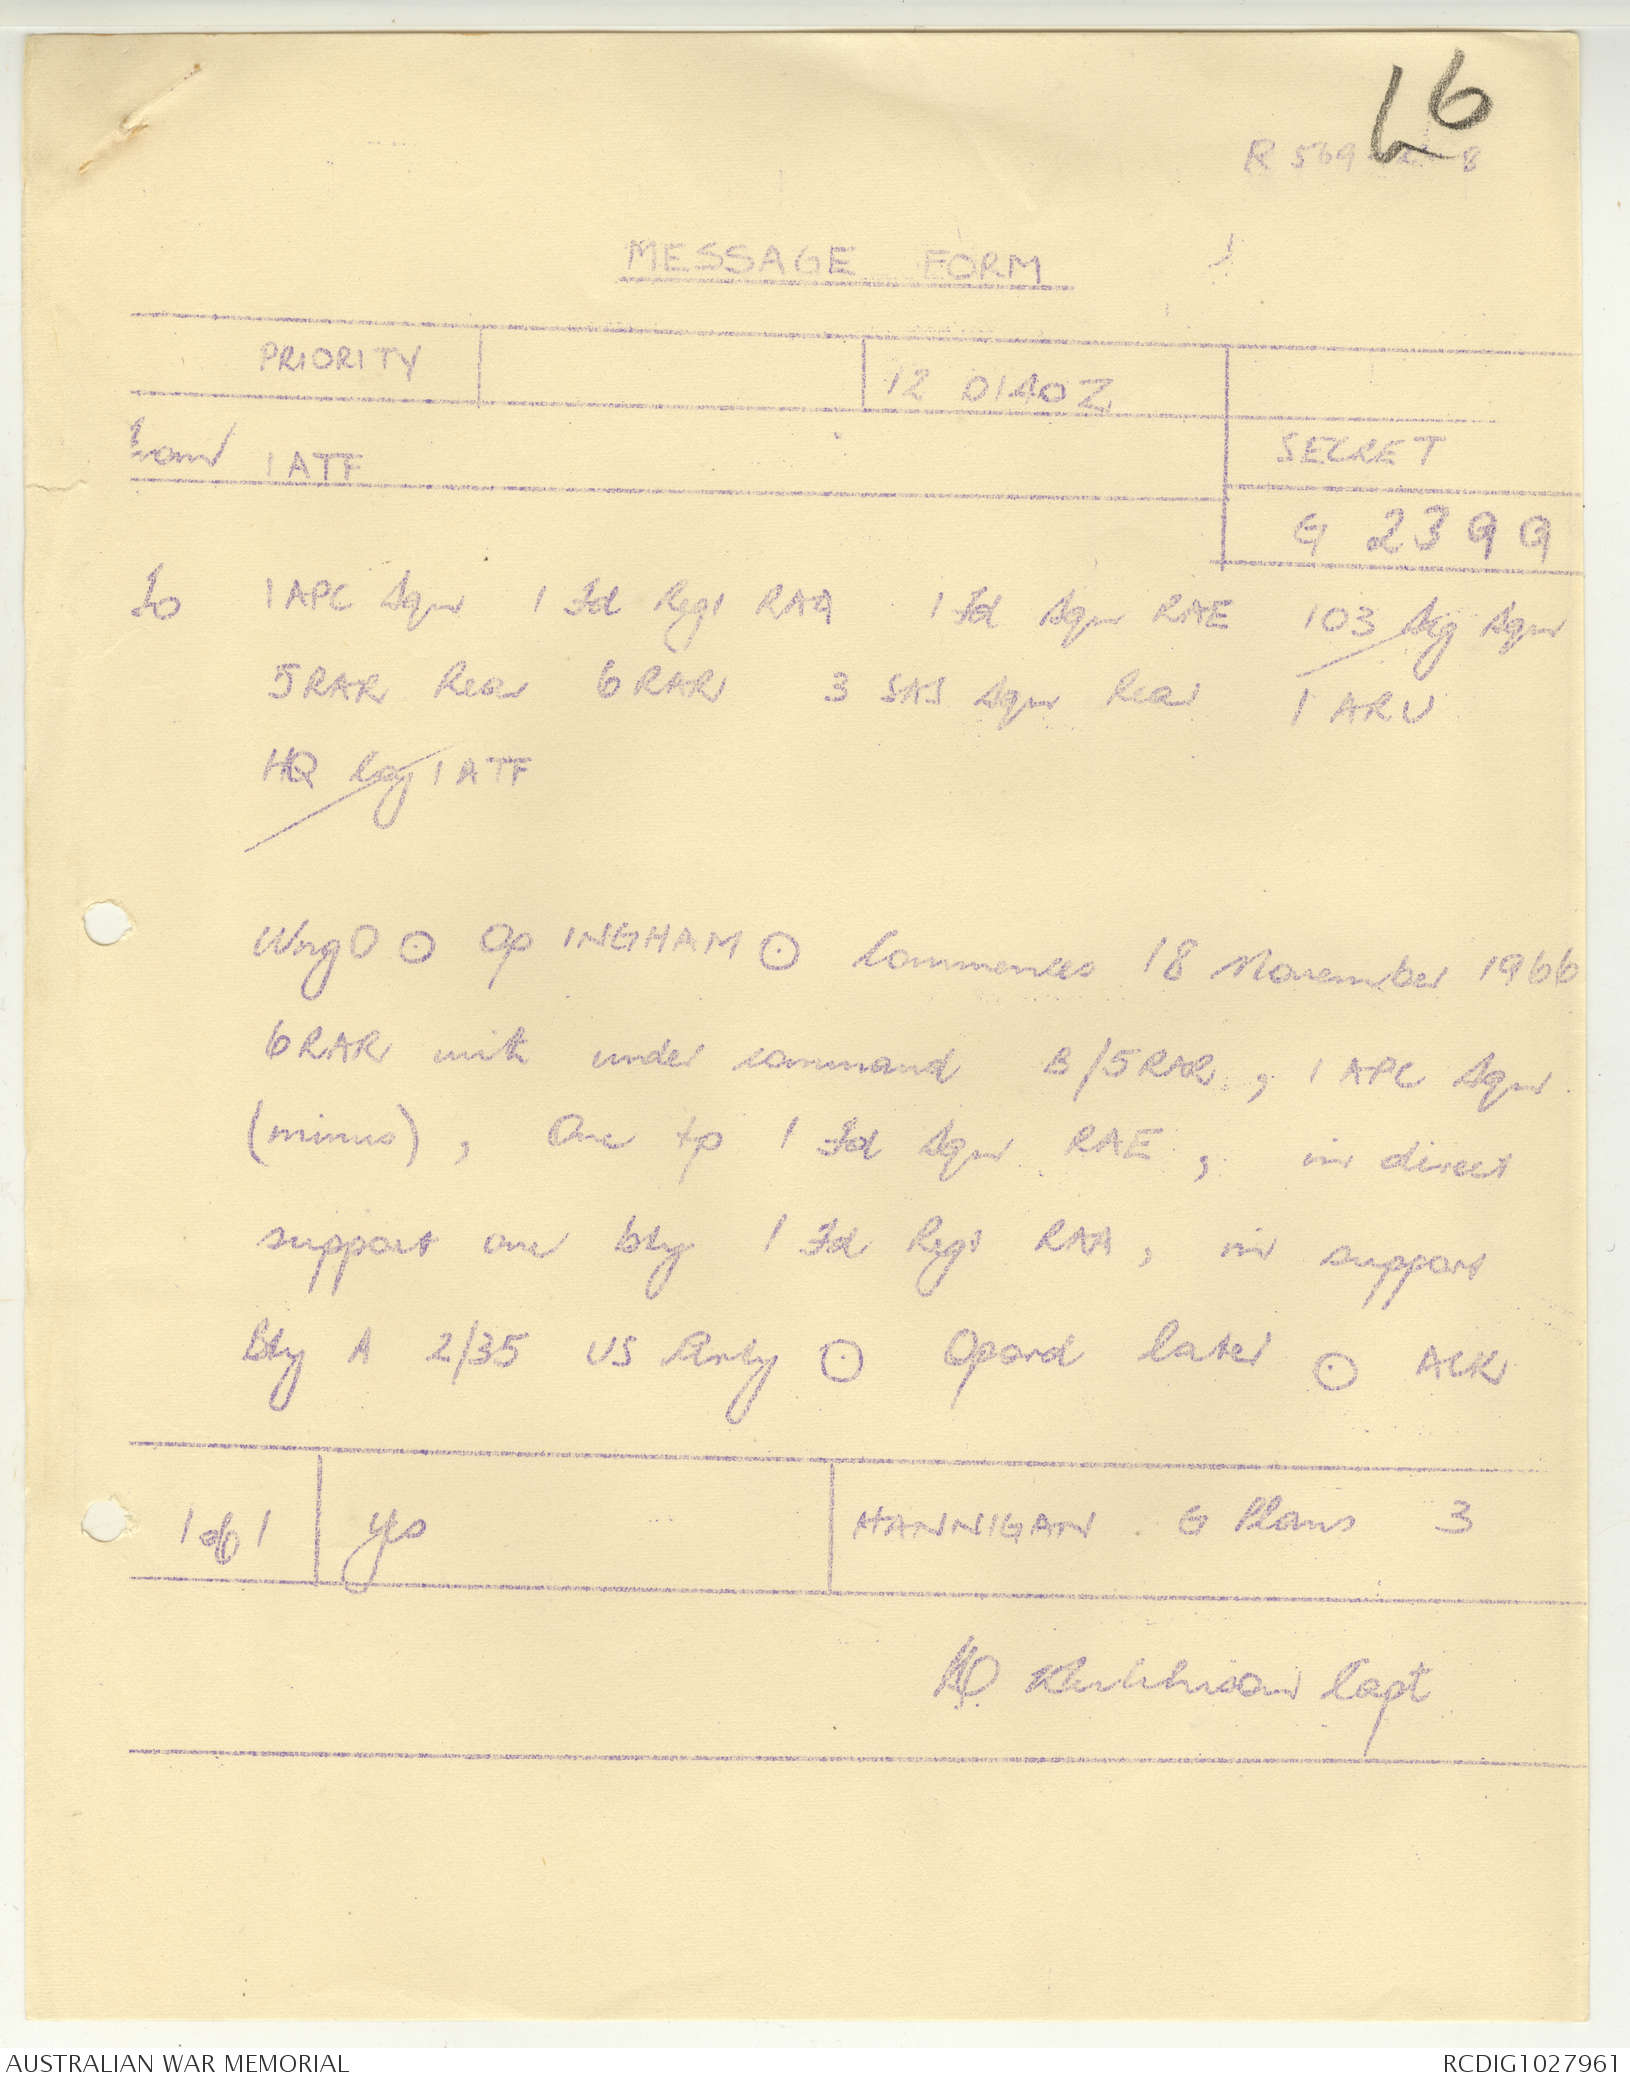 16
R 569
MESSAGE FORM
PRIORITY 12 0140Z
From 1 ATF
SECRET
G 2399
To 1 APC Sqn 1 Fd Regt RAA 1 Fd Sqn RAE 103 Sig Sqn
5RAR Rear 6 RAR 3 SAS Sqn Rear 1 ARU
HQ Coy 1 ATF
WngO ⊙ Op INGHAM ⊙ Commences 18 November 1966
6RAR with under command B/5RAR, 1 APC Sqn
(minus), One tp 1 Fd Sqn RAE, in direct
support one bty 1 Fd Regt RAA, in support
Bty A 2/35 US Arty ⊙ Opord later ⊙ ACK
1 of 1 yes HANNIGAN. G Plans 3
Capt
AUSTRALIAN WAR MEMORIAL RCDIG1027961